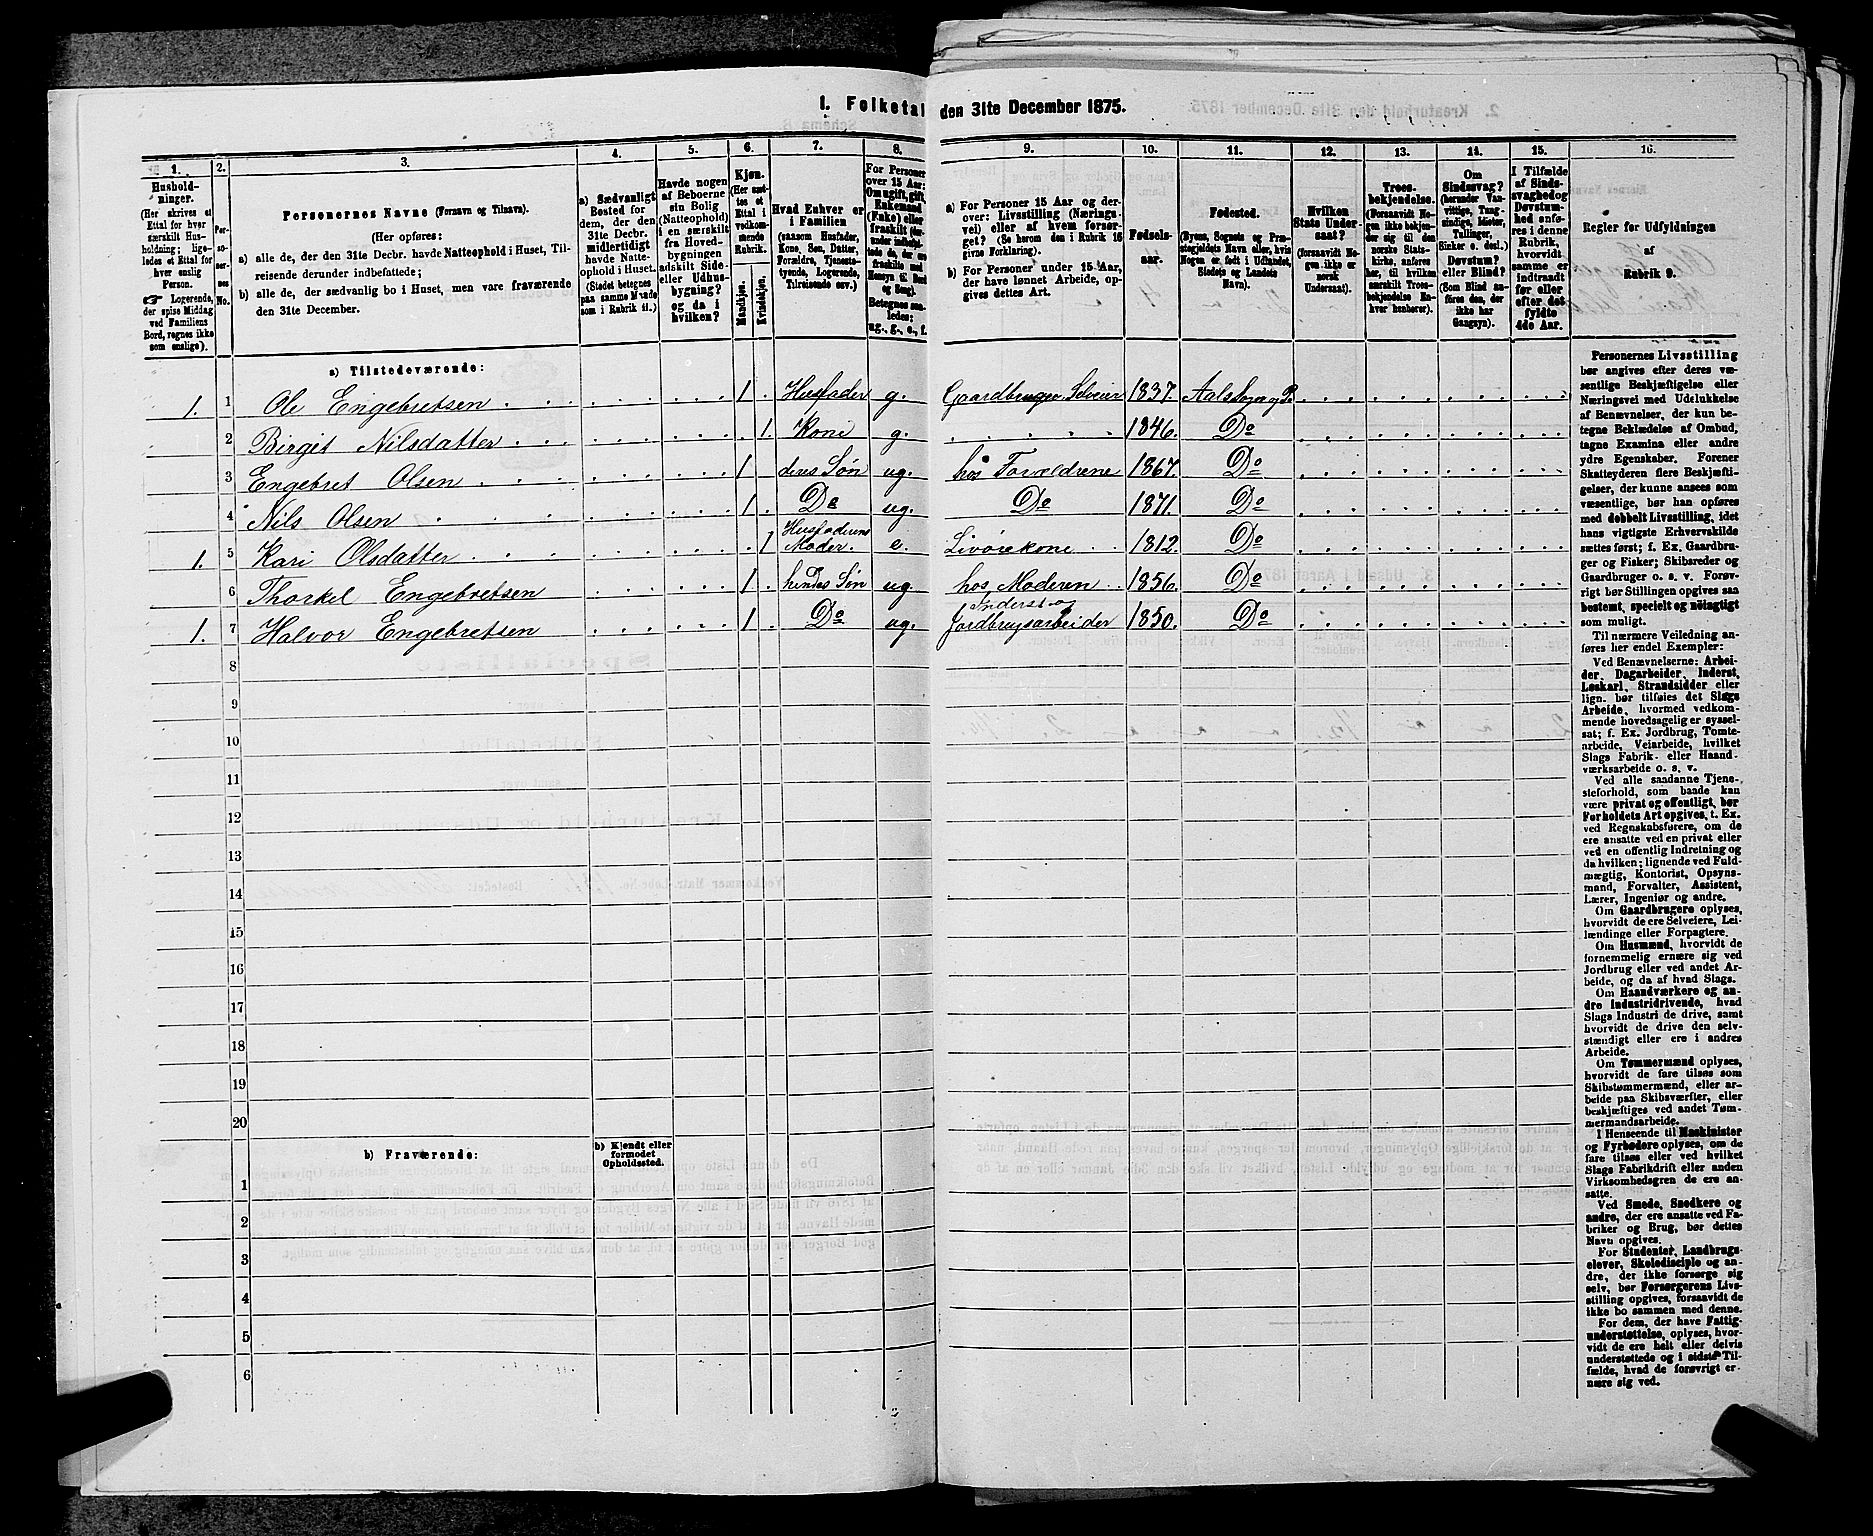 1. Folketal den 31te December 1875.
1. 2. 3. 4. 5. 6. 7. 8. 9. 10. 11. 12. 13. 14. 15. 16.
Hushold-
ninger.
(Her skrives et
Ettal for hver
særskilt Hus-
holdning; lige-
ledes et Ettal for
hver enslig
Person.
☞ Logerende,
der spise Middag
ved Familiens
Bord, regnes ikke
som enslige).
Per-
so-
ner-
nes
No.
Personernes Navne (Fornavn og Tilnavn).
(Her opføres:
a) alle de, der den 31te Decbr. havde Natteophold i Huset, Til-
reisende derunder indbefattede;
b) alle de, der sædvanlig bo i Huset, men vare fraværende
den 31te December.
a) Sædvanligt
Bosted for
dem, der den
31te Decbr.
midlertidigt
havde Natte-
ophold i Huset.
(Stedet betegnes
paa samme Maade
som i Rubrik 11.)
Havde nogen
af Beboerne
sin Bolig
(Natteophold)
i en særskilt
fra Hoved-
bygningen
adskilt Side-
eller Udhus-
bygning?
og da i
hvilken?
Kjøn.
(Her sæt-
tes et
Ettal i
vedkom-
mende
Rubrik.
Mandkjøn.
Kvindekjøn.
Hvad Enhver er
i Familien
(saasom Husfader,
Kone, Søn, Datter,
Forældre, Tjeneste-
tyende, Logerende,
Tilreisende osv.)
For Personer
over 15 Aar:
Om ugift, gift,
Enkemand
(Enke) eller
fraskilt
Betegnes saa-
ledes:
ug., g., e., f.
a) For Personer 15 Aar og der-
over: Livsstilling (Nærings-
vei) eller af hvem forsør-
get? (Se herom den i Rubrik 16
givne Forklaring).
b) For Personer under 15 Aar,
der have lønnet Arbeide, op-
gives dettes Art.
Fødsels-
aar.
Fødested.
(Byens, Sognets og Præ-
stegjeldets Navn eller, hvis
Nogen er født i Udlandet,
Stedets og Landets
Navn).
Hvilken
Stats Under-
saat?
(forsaavidt No-
gen ikke er
norsk
Undersaat).
Troes-
bekjendelse.
(Forsaavidt No-
gen ikke bekjen-
der sig til den
norske Stats-
kirke, anføres
her, til hvilken
særskilt Troes-
bekjendelse En-
hver henhører).
Om
Sindssvag?
(herunder Van-
vittige, Tung-
sindige, Idioter,
Tullinger,
Sinker o. desl.).
Døvstum?
eller Blind?
(Som Blind an-
føres den, der
ikke har
Gangsyn).
I Tilfælde
af Sinds-
svaghed og
Døvstum-
hed anfø-
res i denne
Rubrik,
hvorvidt
samme er
indtraadt
før eller
efter det
fyldte
4de Aar.
Regler for Udfyldningen
af
Rubrik 9.
a) Tilstedeværende:
1. 1 Ole Engebretsen 1 Husfader g. Gaardbruger Selveier 1837. Aals Sogn og P
2 Birgit Nilsdatter 1. Kone g. 1846. Do
3 Engebret Olsen 1 deres Søn ug. hos Forældrene 1867. Do
4 Nils Olsen 1. Do ug. Do 1871. Do
1. 5 Kari Olsdatter 1 Husfaderens
Moder. e. Livørekone 1812. Do
6 Thorkel Engebretsen 1 hendes Søn ug. hos Moderen 1856. Do
1. 7 Halvor Engebretsen 1 Do ug. Inderst og
Jordbrugsarbeider 1850. Do
8
9
10
11
12
13
14
15
16
17
18
19
20
b) Fraværende:
b) Kjendt eller
formodet
Opholdssted.
1
2
3
4
5
6
Personernes Livsstilling
bør angives efter deres væ-
sentlige Beskjæftigelse eller
Næringsvei med Udelukkelse
af Benævnelser, der kun be-
tegne Beklædelse af Ombud,
tagne Examina eller andre
ydre Egenskaber. Forener
Skatteyderen flere Beskjæfti-
gelser, der kunne ansees som
væsentlige, bør han opføres
med dobbelt Livsstilling, idet
hans vigtigste Erhvervskilde
sættes først; f. Ex. Gaardbru-
ger og Fisker; Skibsreder og
Gaardbruger o. s. v. Forøv-
rigt bør Stillingen opgives saa
bestemt, specielt og nøiagtigt
som muligt.
Til nærmere Veiledning an-
føres her endel Exempler:
Ved Benævnelserne: Arbei-
der, Dagarbeider, Inderst,
Løskarl, Strandsidder eller
lign. bør tilføies det Slags
Arbeide, hvormed vedkom-
mende hovedsagelig er syssel-
sat; f. Ex. Jordbrug, Tomte-
arbeide, Veiarbeide, hvilket
Slags Fabrik- eller Haand-
værksarbeide o. s. v.
Ved alle saadanne Tjene-
steforhold, som baade kan
være privat og offentligt, bør
Forholdets Art opgives, t. Ex.
ved Regnskabsførere, om de
ere ansatte ved en privat eller
ved en offentlig Indretning og
da hvilken; lignende ved Fuld-
mægtig, Kontorist, Opsyns-
mand, Forvalter, Assistent,
Lærer, Ingeniør og andre.
Om Gaardbrugere oplyses,
hvorvidt de ere Selveiere, Lei-
lændinge eller Forpagtere.
Om Husmænd, hvorvidt de
fornemmelig ernære sig ved
Jordbrug eller ved andet Ar-
beide, og da af hvad Slags.
Om Haandværkere og an-
dre Industridrivende, hvad
Slags Industri de drive, samt
hvorvidt de drive den selv-
stændigt eller ere i andres
Arbeide.
Om Tømmermænd oplyses,
hvorvidt de fare tilsøs som
Skibstømmermænd, eller ar-
beide paa Skibsværfter, eller
beskjæftiges ved andet Tøm-
mermandsarbeide.
I Henseende til Maskinister
og Fyrbødere oplyses, om de
fare tilsøs eller ved hvilket
Slags Fabrikdrift eller anden
Virksomhedsgren de ere an-
satte.
Ved Smede, Snedkere og
andre, der ere ansatte ved Fa-
briker og Brug, bør dettes
Navn opgives.
For Studenter, Landbrugs-
elever, Skoledisciple og an-
dre, der ikke forsørge sig
selv, bør Forsørgerens Livs-
stilling opgives, forsaavidt de
ikke bo sammen med denne.
For dem, der have Fattig-
understøttelse, oplyses, hvor-
vidt de ere helt eller delvis
understøttede og i sidste Til-
fælde, hvad de forøvrigt er-
nære sig ved.